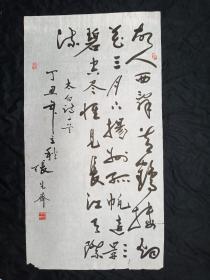 故人西辞黄鹤楼烟
花三月下扬州孤帆远影
碧空尽惟见长江天际
流
太白诗一首
丁丑年立秋
张